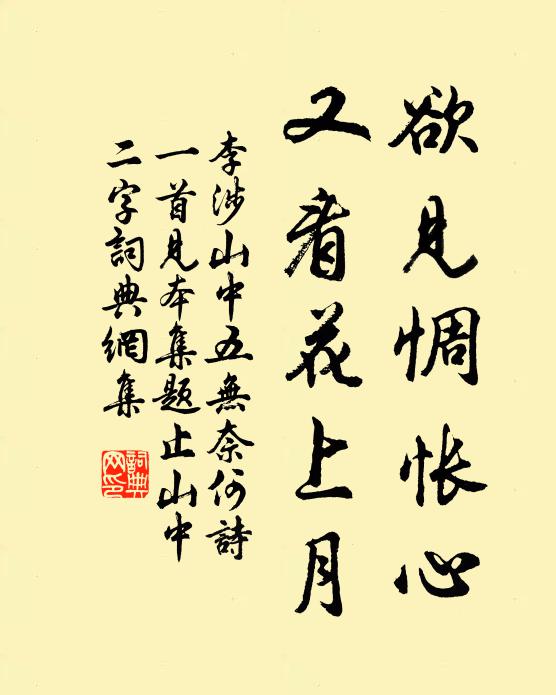 欲見惆怅心
又看花上月
李涉山中五無奈何詩
一首見本集題止山中
二字詞典網集
詞典
网印